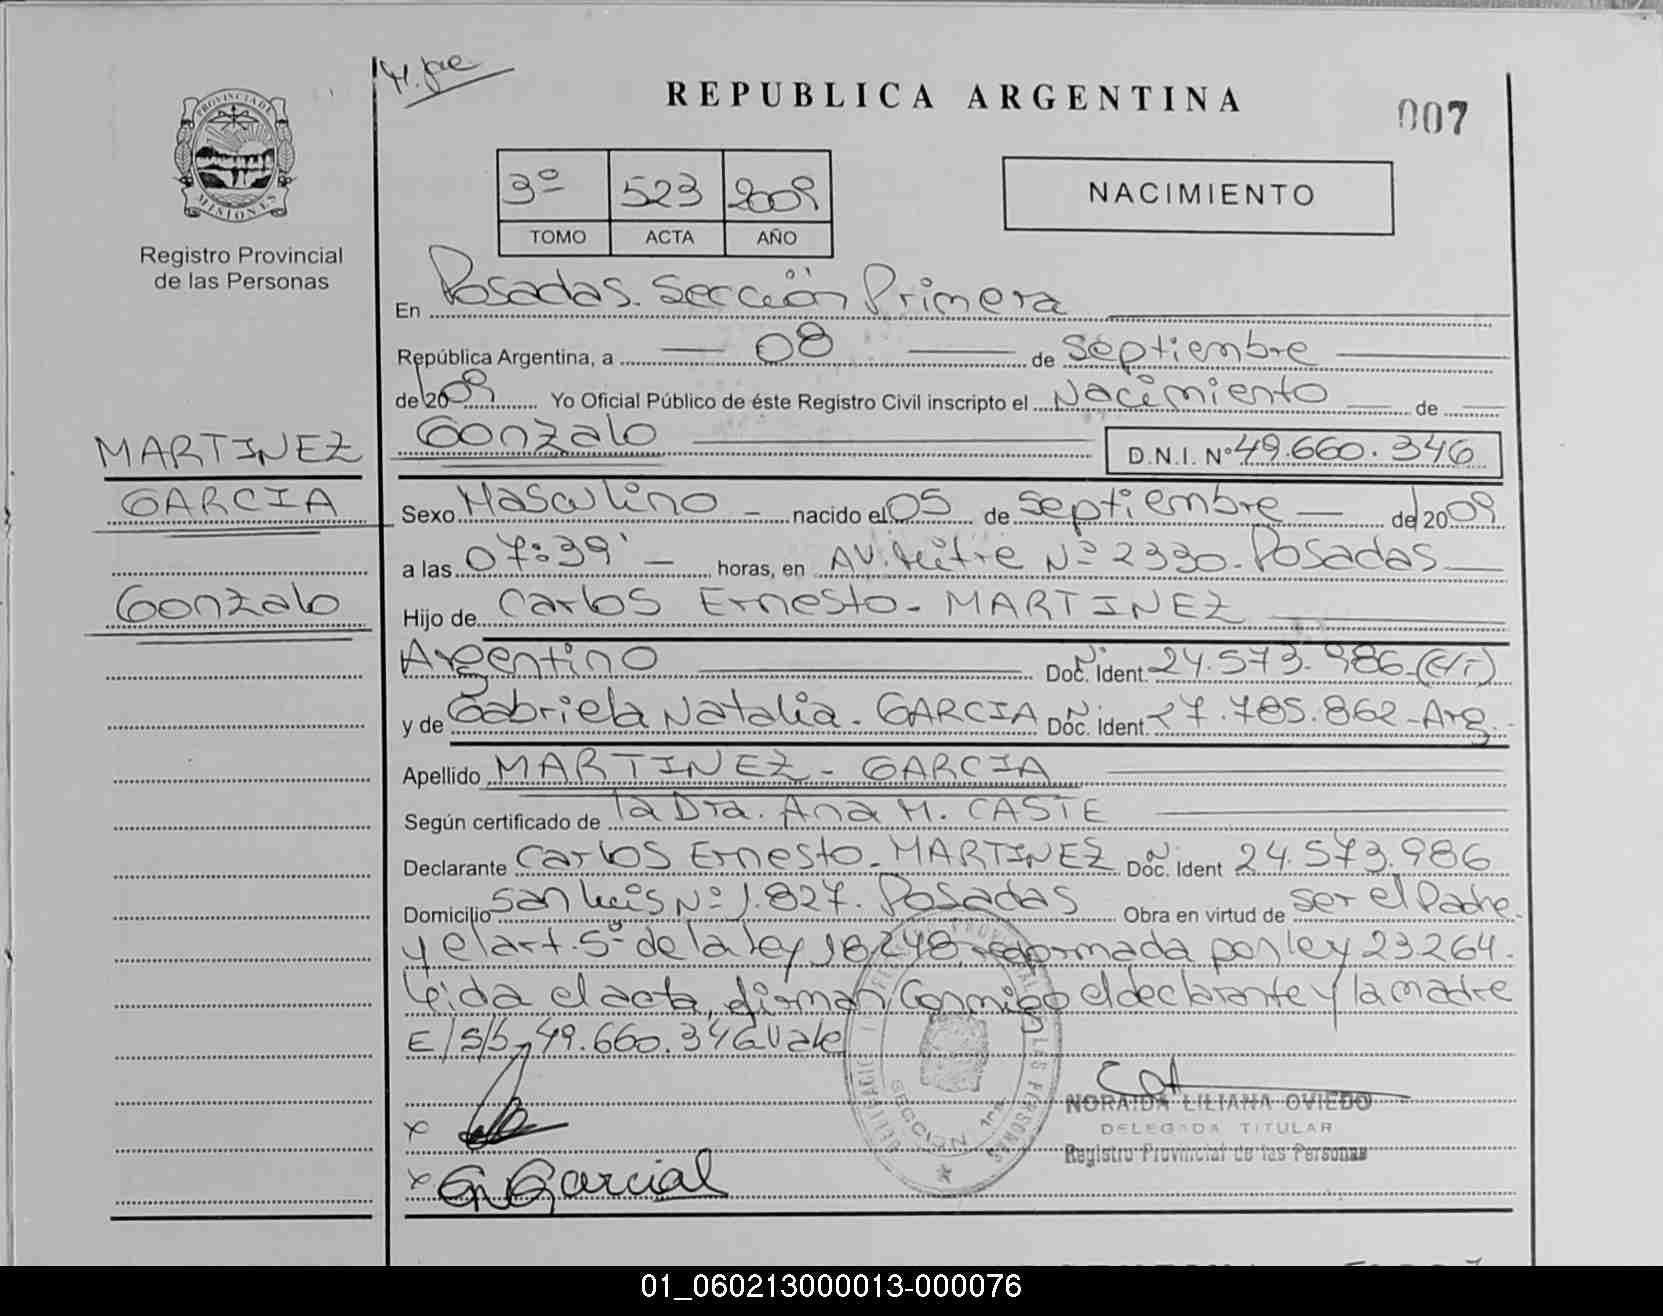 REPUBLICA ARGENTINA
007
PROVINCIA DE
MISIONES
Registro Provincial
de las Personas
3º 523 2009
TOMO ACTA AÑO
NACIMIENTO
En Posadas. Sección Primera
República Argentina, a 08 de Septiembre
de 2009 Yo Oficial Público de éste Registro Civil inscripto el Nacimiento de
Gonzalo D.N.I. Nº 49.660.346
MARTINEZ
GARCIA
Gonzalo
Sexo Masculino nacido el 05 de Septiembre de 2009
a las 07:39' horas, en AV. Mitre Nº 2330. Posadas
Hijo de Carlos Ernesto - MARTINEZ
Argentino Doc. Ident. Nº 24.573.986
y de Gabriela Natalia - GARCIA Doc. Ident. Nº 27.785.862 - Arg.
Apellido MARTINEZ - GARCIA
Según certificado de la Dra. Ana M. CASTE
Declarante Carlos Ernesto - MARTINEZ Doc. Ident Nº 24.573.986
Domicilio San Luis Nº 1.827. Posadas Obra en virtud de ser el Padre
y el art. 5º de la ley 18248, reformada por ley 23264.
leida el acta, firman conmigo el declarante y la madre
E/S/b, 49.660.346 Vale
x
x G. Garcia
SECCION 1ra
NORAIDA LILIANA OVIEDO
DELEGADA TITULAR
Registro Provincial de las Personas
01_060213000013-000076